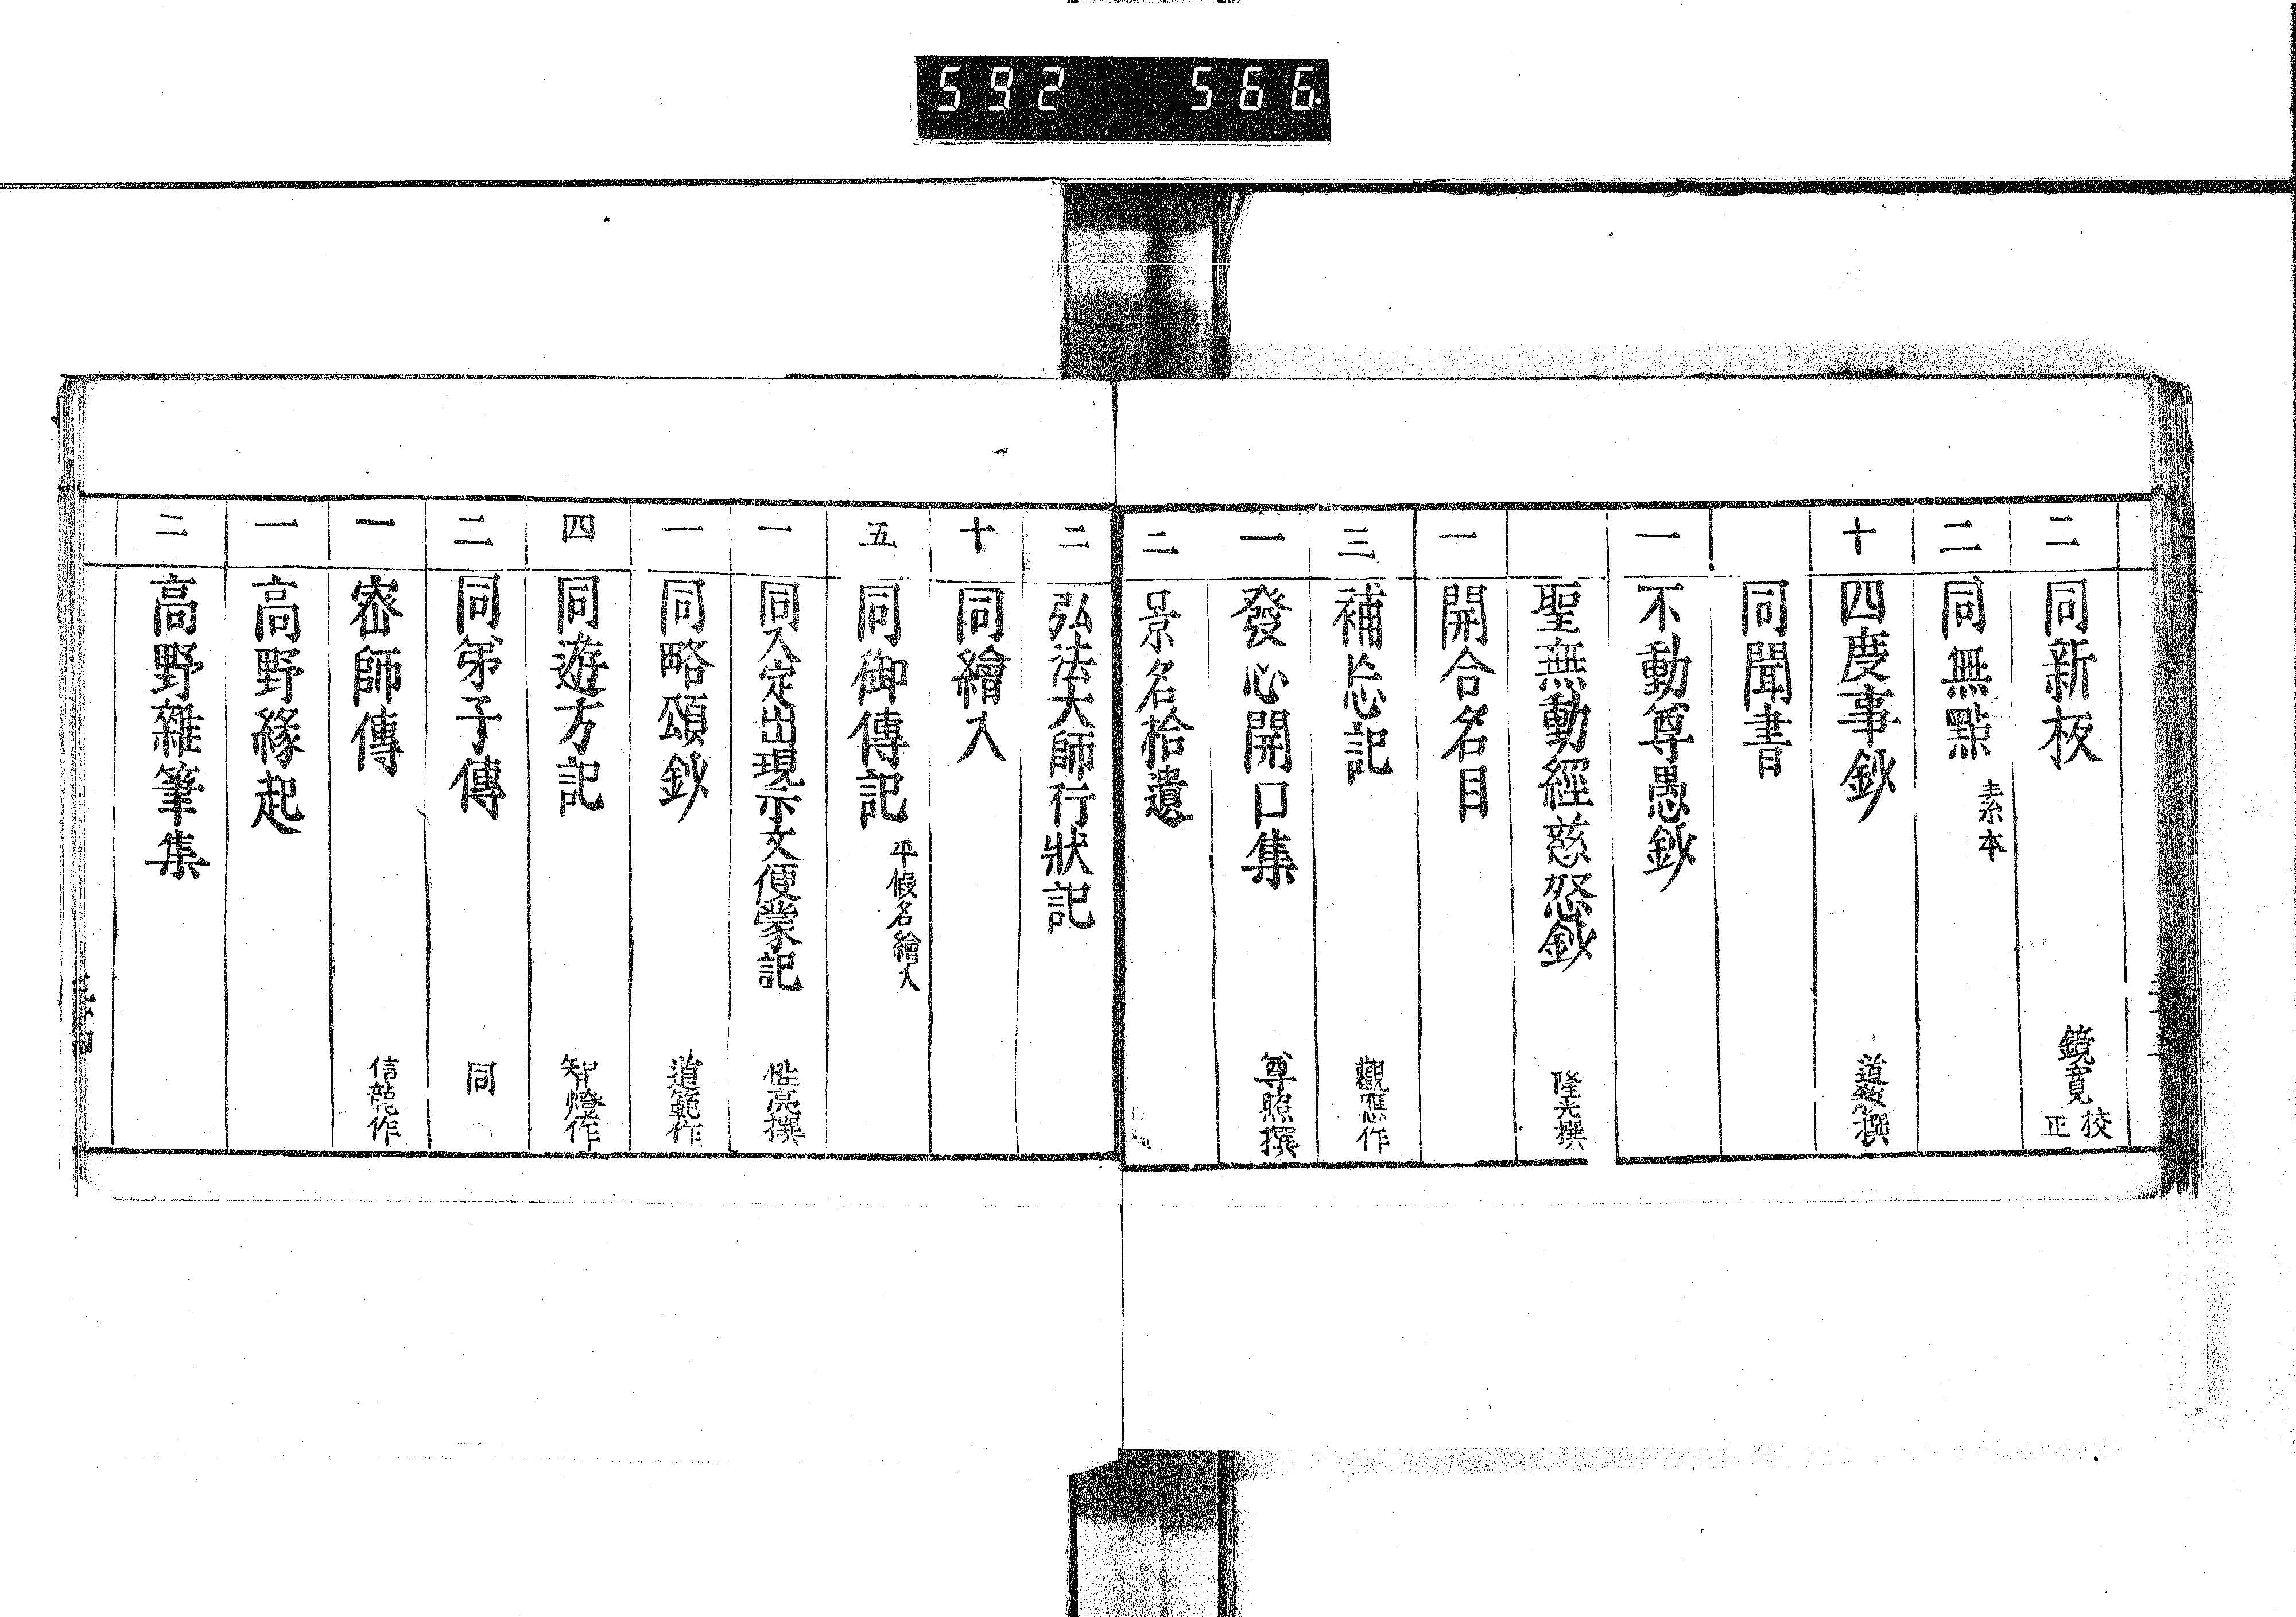 592 566
二 同新板 鏡寬校正
二 同無點 素本
十 四度事鈔 道敘撰
同聞書
一 不動尊愚鈔
聖無動經慈怒鈔 隆光撰
一 開合名目
三 補忘記 觀應作
一 發心開口集 尊照撰
二 景名拾遺
二 弘法大師行狀記
十 同繪入
五 同御傳記 平假名繪入
一 同入定出現示文便蒙記 性亮撰
一 同略頌鈔 道範作
四 同遊方記 智燈作
二 同弟子傳 同
一 密師傳 信龍作
一 高野緣起
二 高野雜筆集